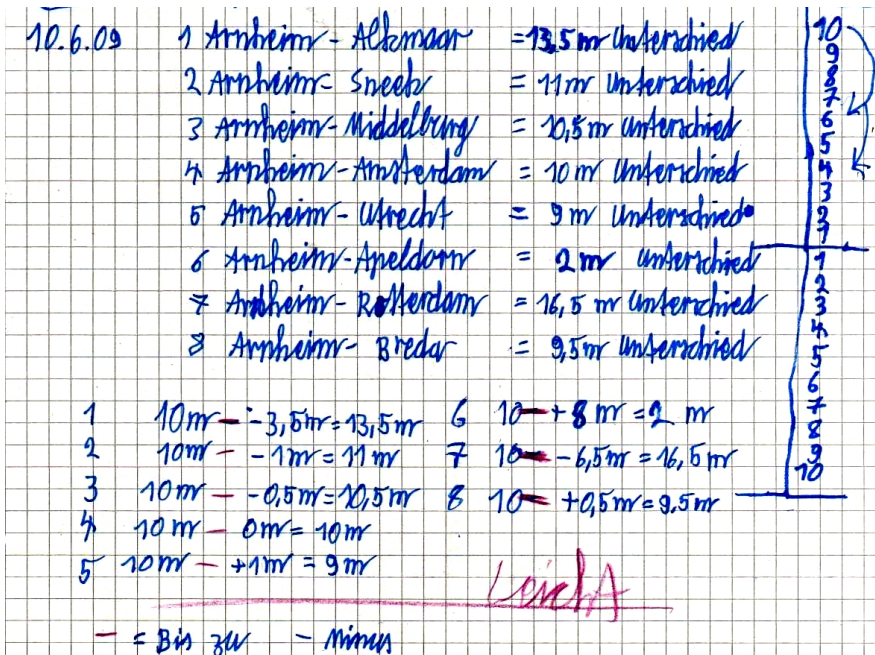 10.6.09 1 Arnheim - Alkmaar = 13,5 m Unterschied
2 Arnheim - Sneek = 11 m Unterschied
3 Arnheim - Middelburg = 10,5 m Unterschied
4 Arnheim - Amsterdam = 10 m Unterschied
5 Arnheim - Utrecht = 9 m Unterschied
6 Arnheim - Apeldorn = 2 m Unterschied
7 Arnheim - Rotterdam = 16,5 m Unterschied
8 Arnheim - Breda = 9,5 m Unterschied
10
9
8
7
6
5
4
3
2
1
1
2
3
4
5
6
7
8
9
10
1 10m — -3,5m = 13,5m
2 10m — -1m = 11m
3 10m — -0,5m = 10,5m
4 10m — 0m = 10m
5 10m — +1m = 9m
6 10 — +8 m = 2 m
7 10 — -6,5m = 16,5m
8 10 — +0,5m = 9.5m
Leicht
— = Bis zu - Minus